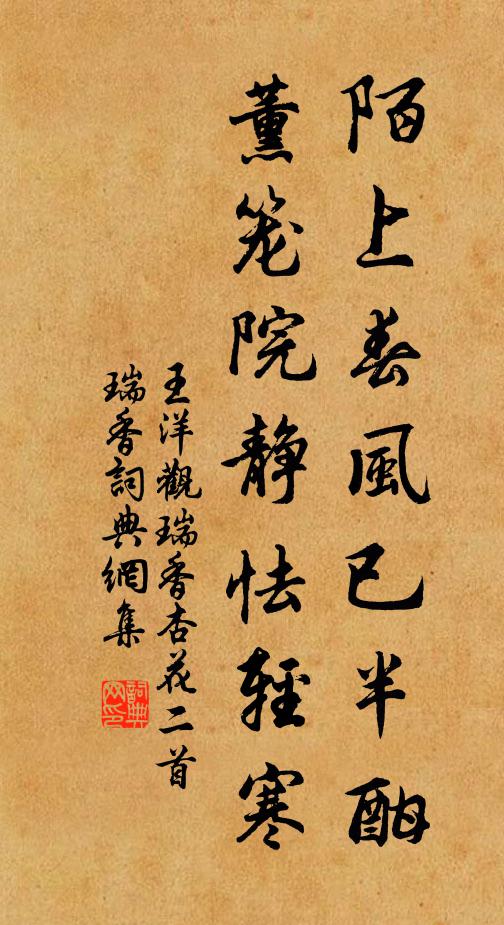 陌上春風已半酣
薰笼院静怯輕寒
王洋觀瑞香杏花二首
瑞香詞典網集
詞典网印